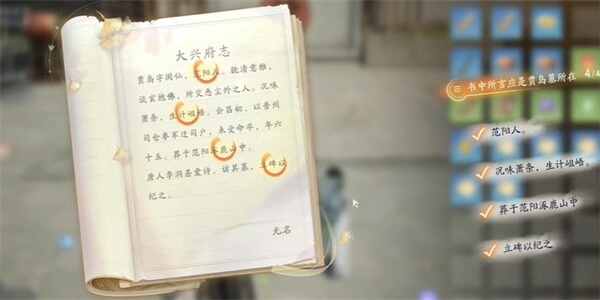 大兴府志
贾岛字阆仙，范阳人，貌清意雅，
谈玄抱佛，所交悉尘外之人。况味
萧条，生计岨峿。会昌初，以普州
司仓参军迁司户，未受命卒，年六
十五。葬于范阳涿鹿山中。
唐人李洞慕爱诗，谒其墓，立碑以
纪之。
无名
书中所言应是贾岛墓所在 4/4
范阳人。
况味萧条，生计岨峿。
葬于范阳涿鹿山中
立碑以纪之